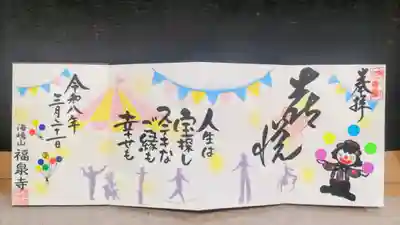 奉拝
喜悦
人生は
宝探し
ステキな
ご縁も
幸せも
令和八年
三月二十一日
海嶋山
福泉寺